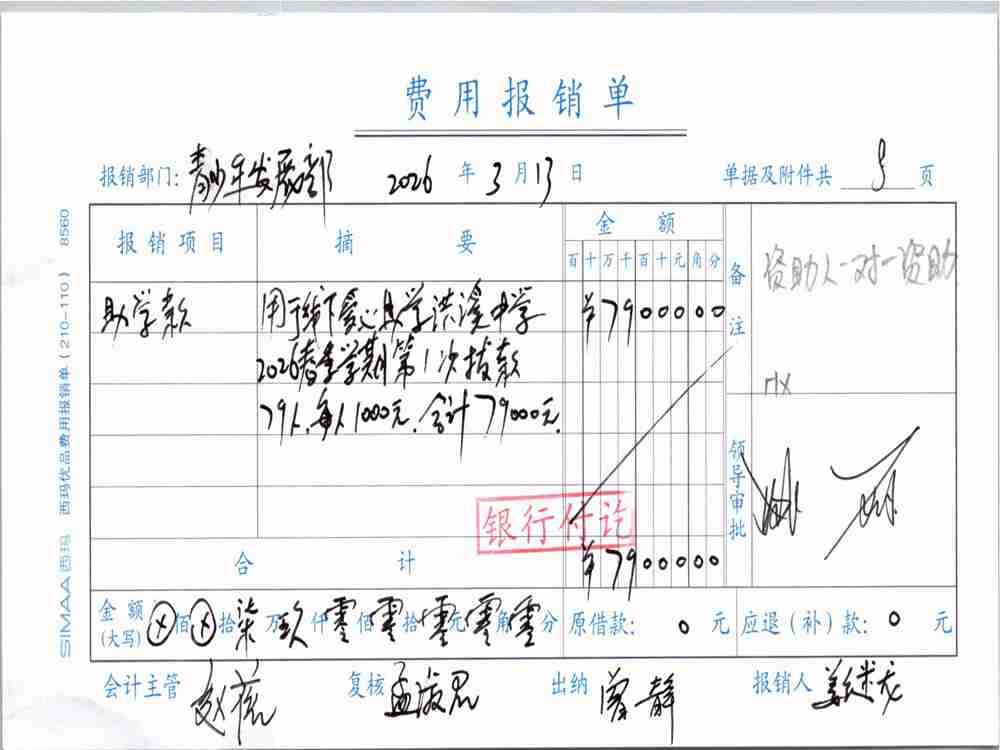 费用报销单
报销部门: 青少年发展部 2026 年 3 月 13 日 单据及附件共 9 页
报销项目 摘要 金额 备注
百十万千百十元角分
资助人一对一资助
助学款 用于线下爱心助学洪溪中学 ¥7900000
2026春季学期第1次拨款
79人,每人1000元,合计79000元
领导审批
银行付讫
合计 ¥7900000
金额(大写) ⊗佰⊗拾柒万玖仟零佰零拾零元零角零分 原借款: 0 元 应退(补)款: 0 元
会计主管 复核 孟淑思 出纳 曾静 报销人
SIMAA西玛 西玛优品费用报销单(210-110) 8560